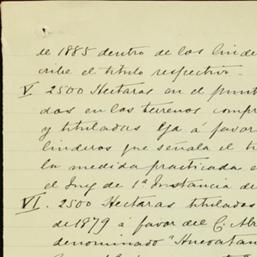 de 1885 dentro de los linde
cribe el titulo respectivo.
V. 2500 Hectaras en el punt
das en los terrenos compr
y tituladas ya á favor
linderos que señala el ti
la medida practicada e
el Juez de 1ª Instancia de
VI. 2500 Hectaras tituladas
de 1879 á favor del C. Al
denominado "